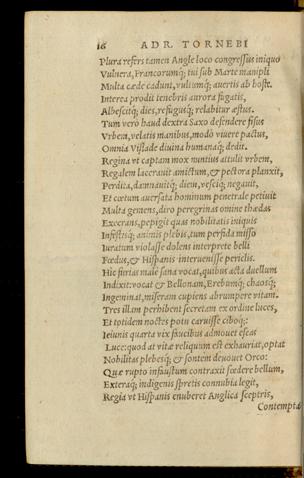 16 ADR. TORNEBI
Plura refers tamen Angle loco congressus iniquo
Vulnera, Francorumq; tui sub Marte manipli
Multa cæde cadunt, vultumq; avertis ab hoste.
Interea prodit tenebris aurora fugatis,
Albescitq; dies, refusq; relabitur æstus.
Tum vero haud dextra Saxo defendere fisus
Vrbem, velatis manibus, modò vivere pactus,
Omnia Vislade divina humanaq; dedit.
Regina vt captam mox nuntius attulit vrbem,
Regalem lacerauit amictum, & pectora planxit,
Perdita, damnauitq; diem, vesciq; negauit,
Et cœtum auersata hominum penetrale petiuit
Multa gemens, diro peregrinas omine thædas
Execrans, pepigit quas nobilitatis iniquis
Infestisq; animis plebis, tum perfida misso
Iuratum violasse dolens interprete belli
Fœdus, & Hispanis interuenisse periclis.
Hic furias male sana vocat, quibus acta duellum
Indixit: vocat & Bellonam, Erebumq; chaosq;
Ingeminat, miseram cupiens abrumpere vitam.
Tres illam perhibent secretam ex ordine luces,
Et totidem noctes potu caruisse ciboq;:
Ieiunis quarta vix faucibus admouet escas
Luce: quod at vitæ reliquum est exhauriat, optat
Nobilitas plebesq; & sontem deuouet Orco:
Quæ rupto infaustum contraxit fœdere bellum,
Exteraq; indigenis spretis connubia legit,
Regia vt Hispanis enuberet Anglica sceptris,
Contempta